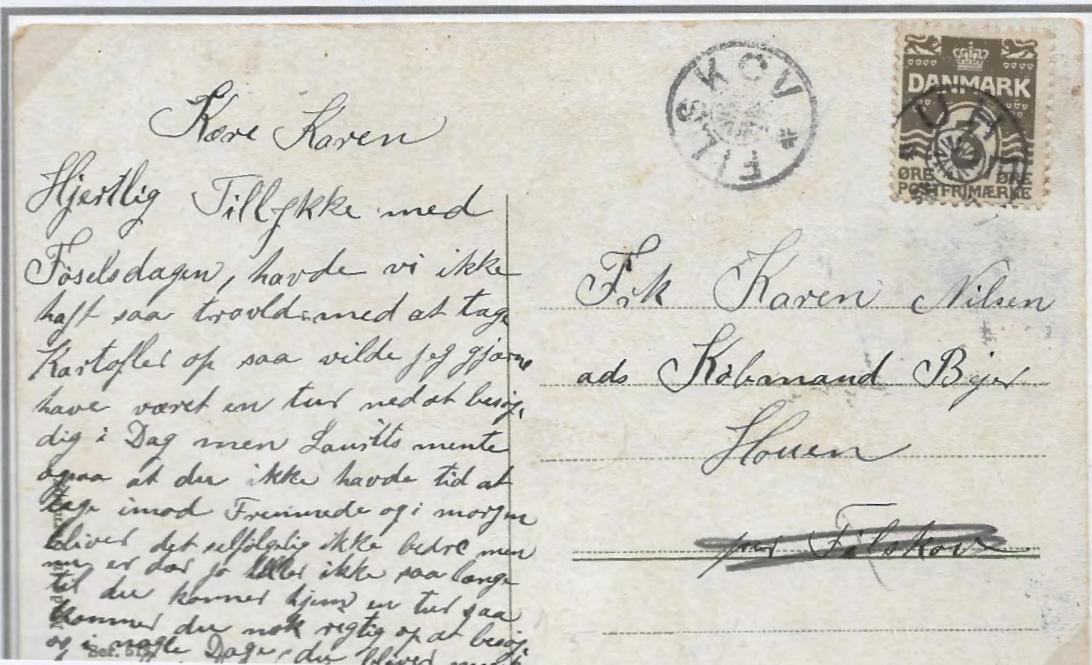 Kære Karen
Hjertlig Tillykke med
Føselsdagen, havde vi ikke
haft saa travld med at tage
Kartofler op saa vilde jeg gjærne
have været en tur ned at besøge
dig i Dag men Lauritts mente
ogsaa at du ikke havde tid at
tage imod Fremmede og i morgen
bliver det selfølgelig ikke bedre men
nu er der jo eller ikke saa længe
til du kommer hjem en tur saa
kommer du nok regtig op at besøge
os i nogle Dage, du bliver
FILSKOV
DANMARK
3
ØRE ØRE
POSTFRIMÆRKE
Frk Karen Nilsen
ads Købmand Bejer
Houen
per Filskov